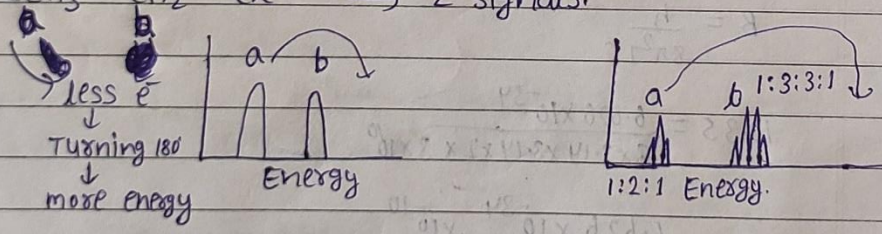 2 signals.
a b
less e⁻
↓
Turning 180°
↓
more energy
a b
Energy
a b 1:3:3:1
1:2:1 Energy.